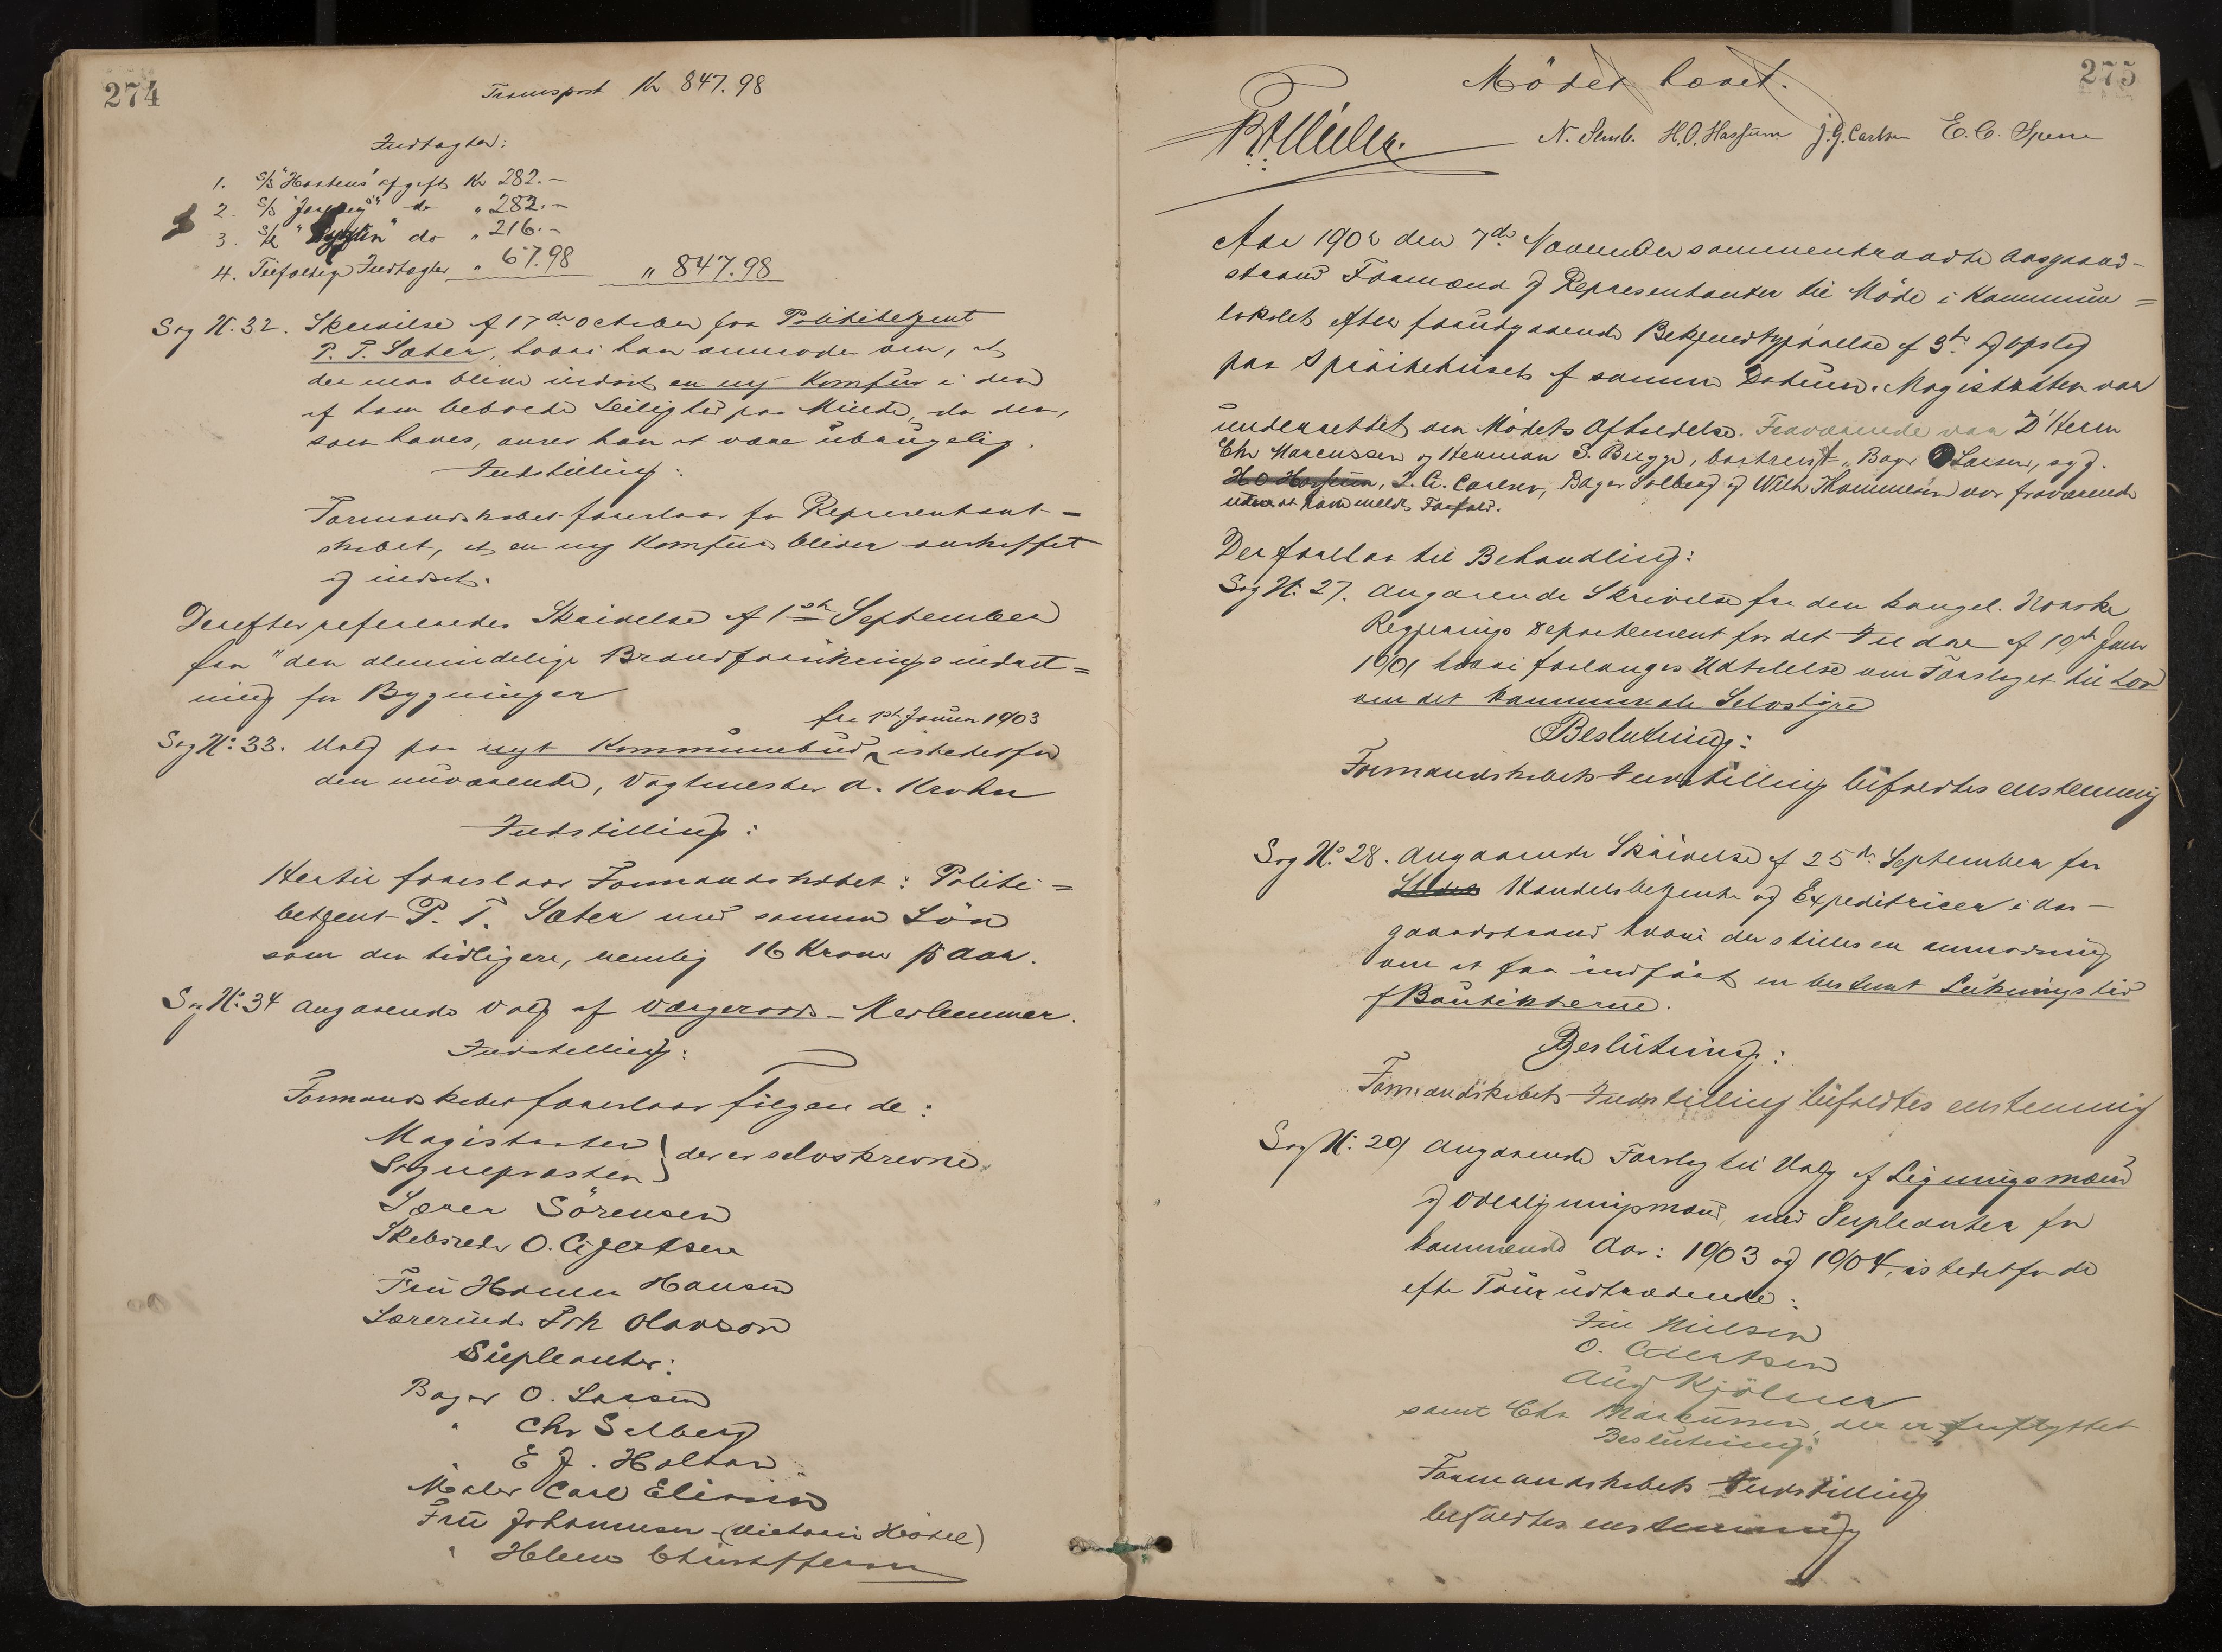 274
Transport Kr 847.98
Indtægter:
1. S/S "Horstens" afgift Kr 282.—
2. S/S do " 282.—
3. do " 216.—
4. Tilfældige Indtægter " 67.98 " 847.98
Sag N. 32. Skrivelse af 17de October fra Politibetjent
P. T. Sæter, hvori han anmoder om, at
der maa blive indsat en ny Komfur i den
af ham beboede Leilighed paa Minde, da den,
som haves, anser han at være ubrugelig.
Indstilling:
Formandskabet foreslaar for Representant=
skabet, at en ny Komfur bliver anskaffet
og indsat.
Derefter refereredes Skrivelse af 1ste September
fra "den almindelige Brandforsikringsindret=
ning for Bygninger
fra 1ste Januar 1903
Sag N: 33. Valg paa nyt Kommunebud istedetfor
den nuværende, Vagtmester A. Krohn
Indstilling:
Hertil foreslaar Formandskabet: Politi=
betjent P. T. Sæter med samme Lön
som den tidligere, nemlig 16 Kroner pr Aar.
Sag N: 34 Angaaende Valg af Værgeraads-Medlemmer.
Indstilling:
Formandskabet foreslaar fölgende:
Magistraten
Sognepresten } der er selvskrevne.
Lærer Sörensen
Skibsreder O. Gjertsen
Fru Hanna Hansen
Lærerinde Olavson
Supleanter:
Bager O. Larsen
" Chr Solberg
" E J. Holtan
Maler Carl
Fru Johannesen (Victoria Hotel)
" Helene Christoffersen
275
Mödet hævet.
N. H.O. Hassum J.G. Carlsen E. C.
Aar 1902 den 7de November sammentraadte Aasgaard-
strand Formænd og Representanter til Möde i Kommune=
lokalet efter forudgaaende Bekjendtgjörelse af 3de og opslag
paa Spröitehuset af samme Datum. Magistraten var
underrettet om Mödets Afholdelse. Fraværende var D'Herrer
Chr Marcussen og Herman S. Bugge, bortreist, Bager O Larsen, syg.
H O Hassum, L. G. Carlsen, Bager Solberg og Wilh Thommesen var fraværende
uden at have meldt Forfald.
Der forelaa til Behandling:
Sag N: 27. Angaaende Skrivelse fra den kongel. Norske
Regjerings Departement for det Indre af 19de Juni
1901 hvori forlanges Udtalelse om Forslaget til Lov
om det kommunale Selvstyre
Beslutning:
Formandskabets Indstilling bifaldtes enstemmig
Sag N: 28. Angaaende Skrivelse af 25de September fra
Handelsbetjente og Expeditricer i Aas-
gaardstrand hvori der stilles en anmodning
om at faa indfört en bestemt Lukningstid
af Boutikkerne.
Beslutning:
Formandskabets Indstilling bifaldtes enstemmig
Sag N: 29 Angaaende Forslag til Valg af Ligningsmænd
og Overligningsmænd, med Supleanter for
kommende Aar: 1903 og 1904, istedetfor de
efter Tour udtrædende:
Nielsen
O. Gjertsen
Aug Kjölner
samt Chr Marcussen, der er fraflyttet
Beslutning:
Formandskabets Indstilling
bifaldtes enstemmig